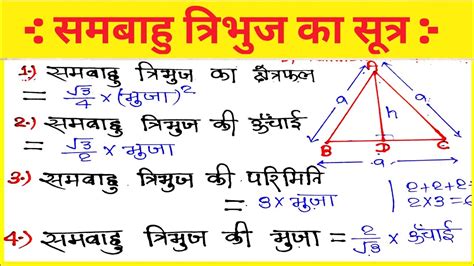 -: समबाहु त्रिभुज का सूत्र :-
1.) समबाहु त्रिभुज का क्षेत्रफल
= √3/4 × (भुजा)²
2.) समबाहु त्रिभुज की ऊँचाई
= √3/2 × भुजा
3.) समबाहु त्रिभुज की परिमिति
= 3 × भुजा
4.) समबाहु त्रिभुज की भुजा = 2/√3 × ऊँचाई
A
a h a
B D C
a
2+2+
2×3=